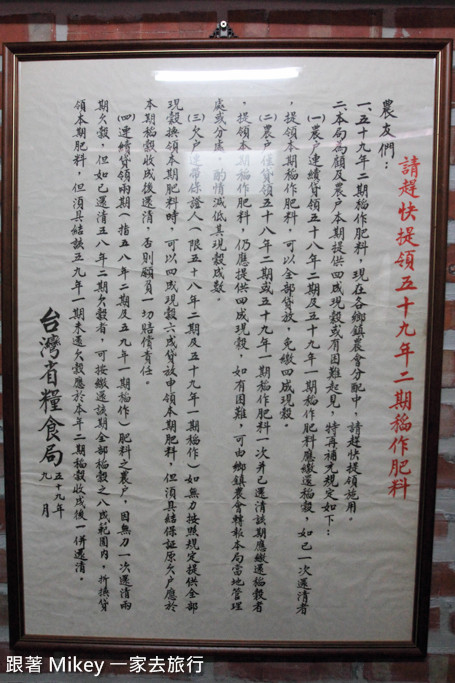 請趕快提領五十九年二期稻作肥料
農友們：
一、五十九年二期稻作肥料，現在各鄉鎮農會分配中，請趕快提領施用。
二、本局為顧及農戶本期提供四成現穀或有困難起見，特再補充規定如下：
(一)農戶連續貸領五十八年二期及五十九年一期稻作肥料應繳還稻穀，如已一次還清者
，提領本期稻作肥料，可以全部貸放，免繳四成現穀。
(二)農戶僅貸領五十八年二期或五十九年一期稻作肥料一次并已還清該期應繳還稻穀者
，提領本期稻作肥料，仍應提供四成現穀，如有困難，可由鄉鎮農會轉報本局當地管理
處或分處，酌情減低其現穀成數。
(三)欠戶連帶保證人(限五十八年二期及五十九年一期稻作)如無力按照規定提供全部
現穀換領本期肥料時，可以四成現穀六成貸放申領本期肥料，但須具結保証原欠戶應於
本期稻穀收成後還清，否則願負一切賠償責任。
(四)連續貸領兩期(指五八年二期及五九年一期稻作)肥料之農戶，因無力一次還清兩
期欠穀，但如已還清五八年二期欠穀者，可按繳還該期全部稻穀之八成範圍內，折換貸
領本期肥料，但須具結該五九年一期未還欠穀應於本年二期稻穀收成後一併還清。
台灣省糧食局
五十九年
九 月
跟著 Mikey 一家去旅行